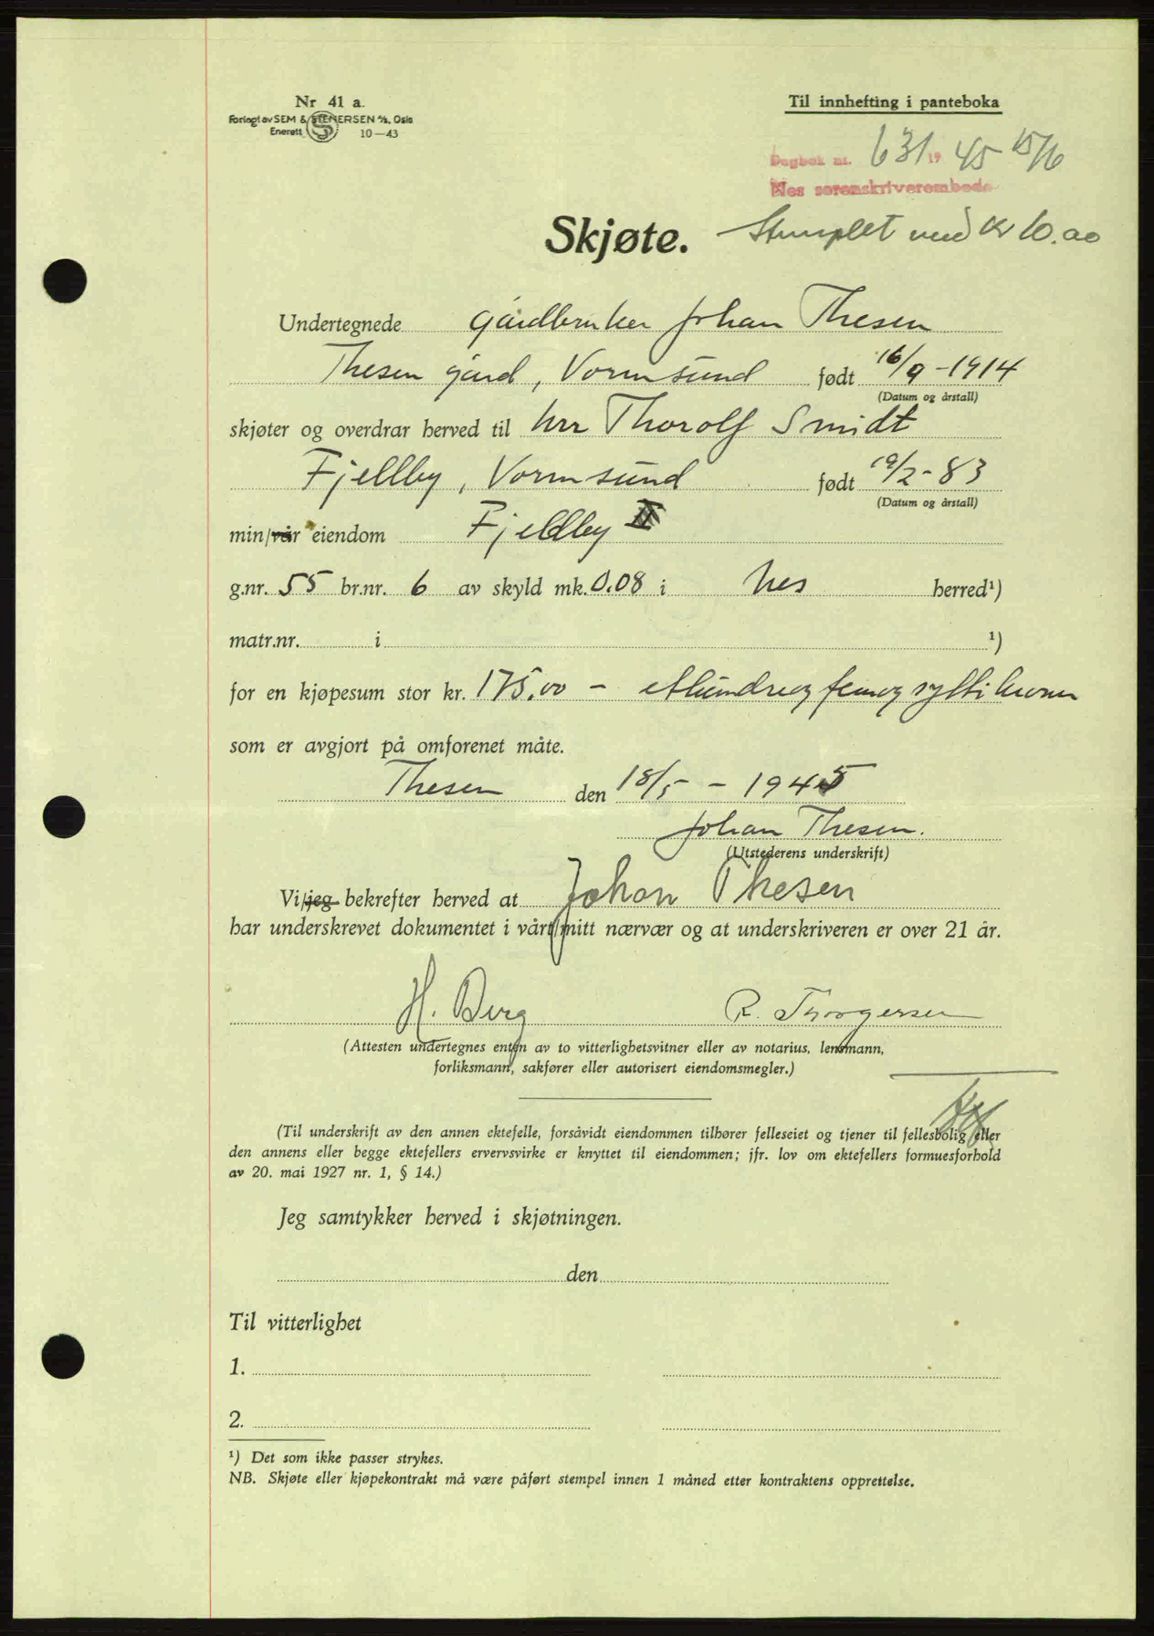 Nr 41 a.
Forlagt av SEM & STENERSEN A/S, Oslo
Enerett 10—43
Til innhefting i panteboka
Dagbok nr. 631 19 45 15/6
Nes sorenskriverembede
Skjøte.
Stemplet med kr 10.00
Undertegnede gårdbruker Johan Thesen
Thesen gård, Vormsund født 16/9-1914
(Datum og årstall)
skjøter og overdrar herved til hrr Thorolf Smidt
Fjellby, Vormsund født 19/2-83
(Datum og årstall)
min/vår eiendom Fjellby II
g.nr. 55 br.nr. 6 av skyld mk. 0.08 i Nes herred¹)
matr.nr. i ¹)
for en kjøpesum stor kr. 175.00 - etthundreogfemogsytti kroner
som er avgjort på omforenet måte.
Thesen den 18/5 - 1945
Johan Thesen.
(Utstederens underskrift)
Vi/jeg bekrefter herved at Johan Thesen
har underskrevet dokumentet i vårt/mitt nærvær og at underskriveren er over 21 år.
H. Berg R. Thorgersen
(Attesten undertegnes enten av to vitterlighetsvitner eller av notarius, lensmann,
forliksmann, sakfører eller autorisert eiendomsmegler.)
(Til underskrift av den annen ektefelle, forsåvidt eiendommen tilhører felleseiet og tjener til fellesbolig eller
den annens eller begge ektefellers ervervsvirke er knyttet til eiendommen; jfr. lov om ektefellers formuesforhold
av 20. mai 1927 nr. 1, § 14.)
Jeg samtykker herved i skjøtningen.
den
Til vitterlighet
1.
2.
¹) Det som ikke passer strykes.
NB. Skjøte eller kjøpekontrakt må være påført stempel innen 1 måned etter kontraktens opprettelse.